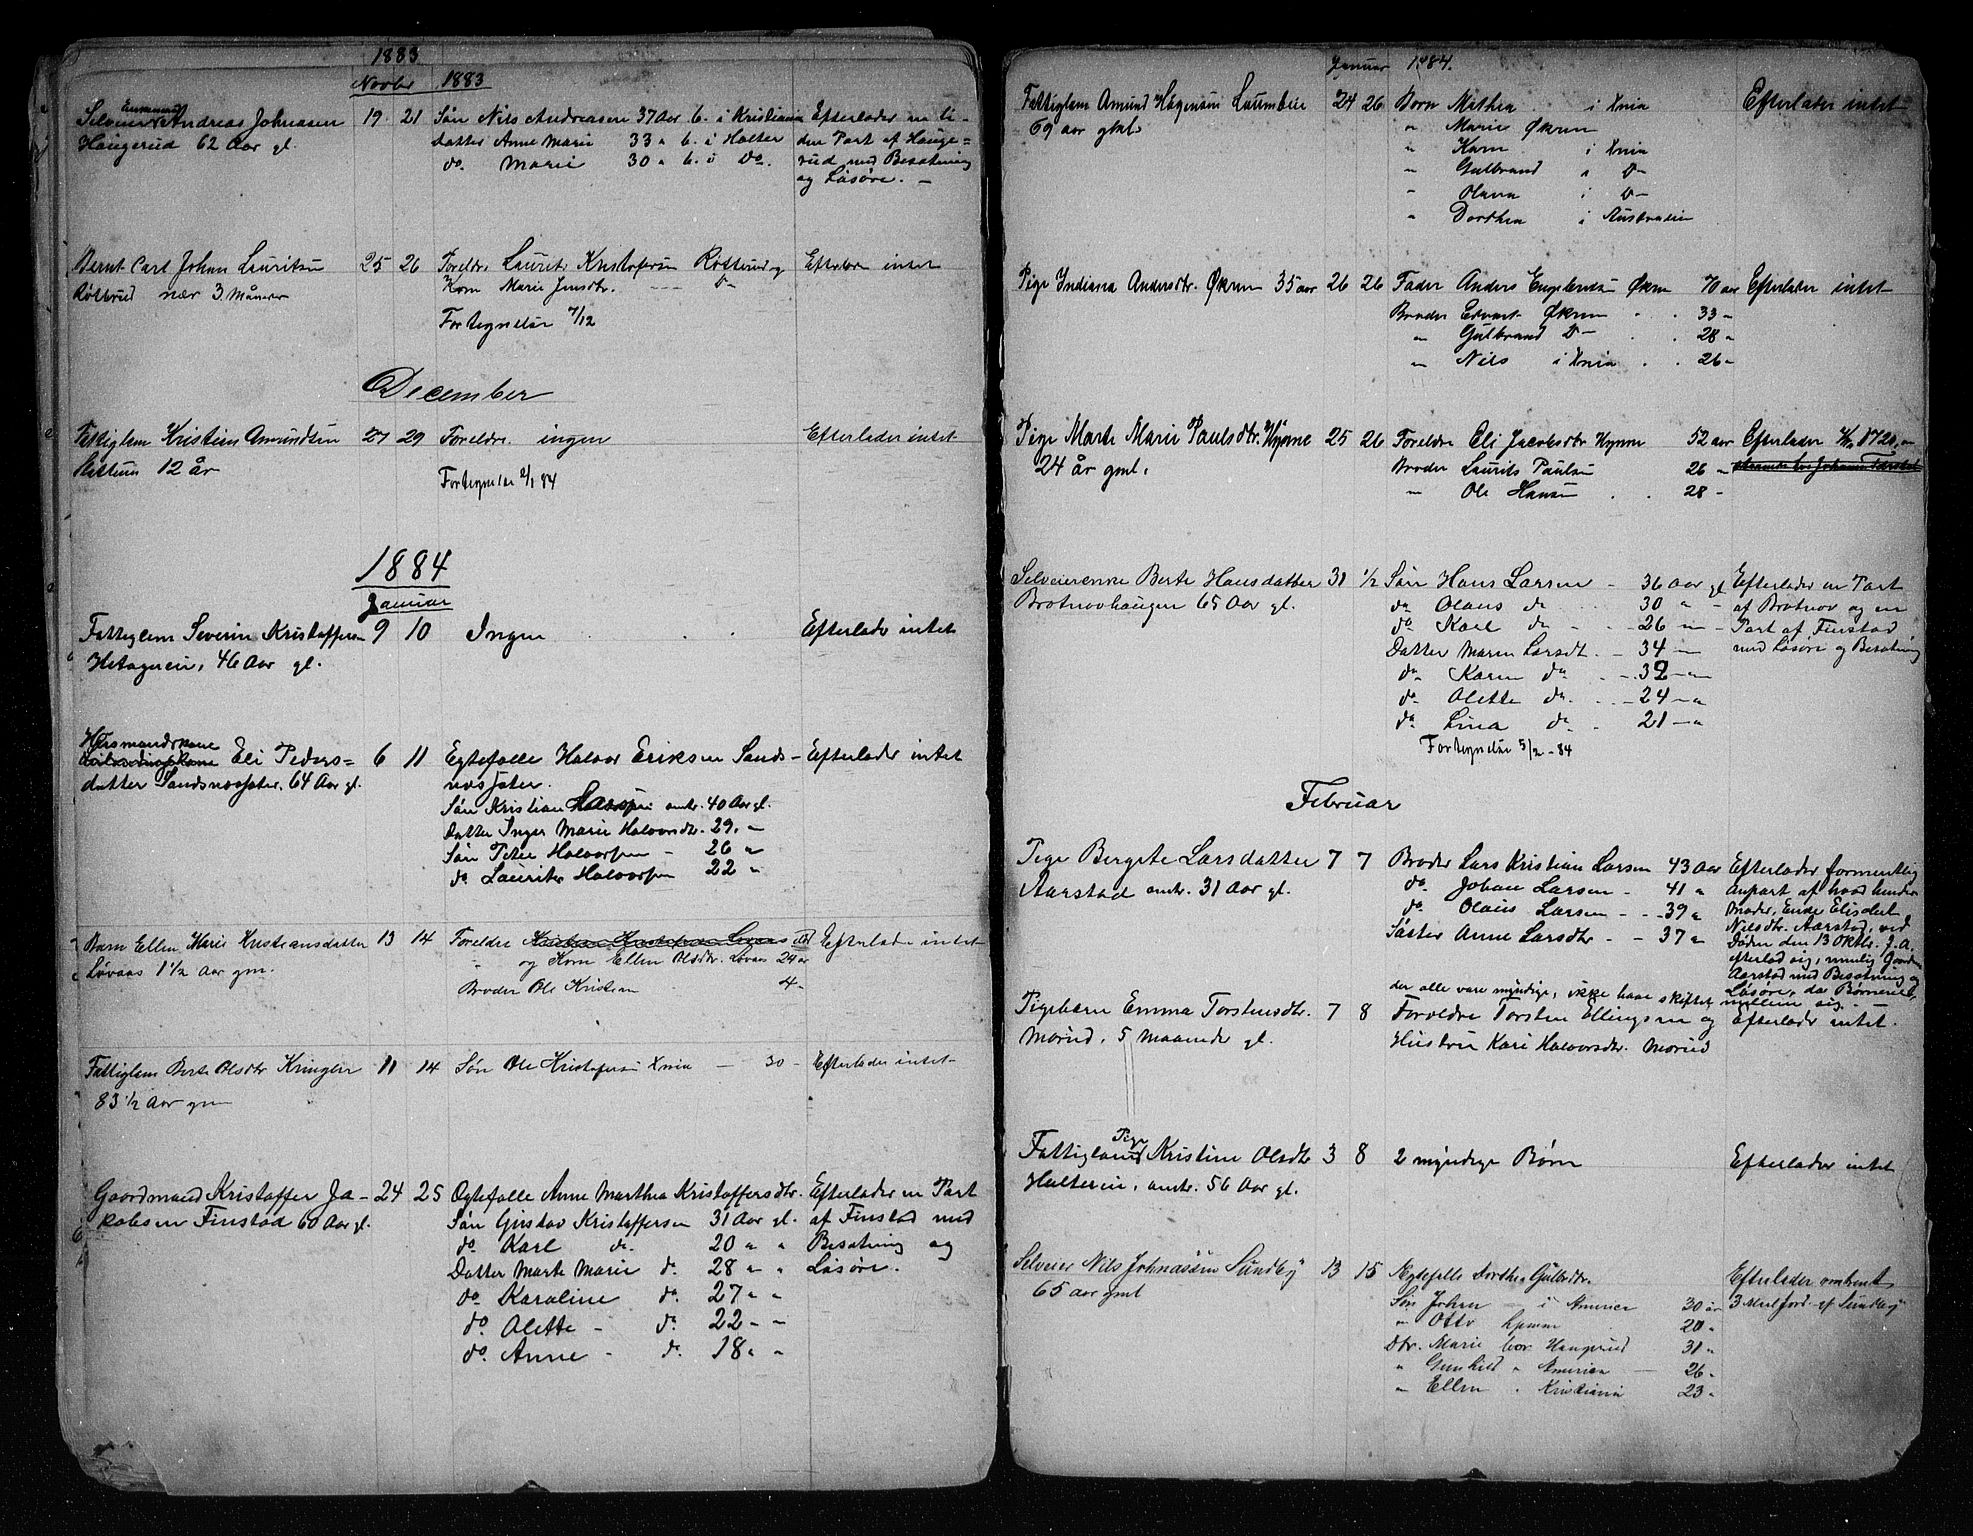 1883
Novbr 1883
Enkemand
Selveier Andreas Johnasen 19 21 Søn Nils Andreasen 37 Aar b. i Kristiania Efterlader en li-
Haugerud 62 Aar gl. datter Anne Marie 33 " b. i Holter den Part af Hauge-
do. Marie 30 " b. i Do. rud med Besætning
og Løsøre. —
Bernt Carl Johan Lauritsen 25 26 Foreldre Laurits Kristofersen Røtterud og Efterlader intet
Røtterud nær 3 Måneder Kone Marie Jensdtr. D-
Fortegnelse 7/12
December
Fattiglem Kristian Amundsen 27 29 Foreldre ingen Efterlader intet
12 år
Fortegnelse 2/1 84
1884
Januar
Fattiglem Severin Kristoffersen 9 10 Ingen Efterlader intet
46 Aar gl.
Husmandskone
Eli Peders= 6 11 Egtefolle Halvor Eriksen Sands- Efterlader intet
datter Sandsnæsjatet. 64 Aar gl.
Søn Kristian omtr. 40 Aar gl.
Datter Inger Marie Halvorsdtr. 29. "
Søn Peter Halvorsen - 26 "
do Lauritz Halvorsen 22 "
Barn Ellen Marie Kristiansdatter 13 14 Foreldre Død Efterlader intet
Løvaas 1 1/2 Aar gm. og Kone Ellen Olsdtr. Løvaas 29 år
Broder Ole Kristian 4 "
Fattiglem Berte Olsdtr Kringler 11 14 Søn Ole Kristofersen Xnia — 30 - Efterlader intet
83 1/2 Aar gm
Gaardmand Kristoffer Ja- 24 25 Egtefolle Anne Marthea Kristoffersdtr. Efterlader en Part
kobsen Finstad 60 Aar gl. Søn Gustav Kristoffersen 31 Aar gl. af Finstad med
do. Karl do. 20 " " Besætning og
Datter Marte Marie do. 28 " " Løsøre.
do. Karoline do. 27 " "
do. Olette - do. 22 - -
do. Anne - do. 18 " "
Januar 1884.
Fattiglem Amund Hågensen 24 26 Børn Mathea i Xnia Efterlader intet
69 aar gml. " Marie Økren
" Karn i Xnia
" Gulbrand i D-
" Olava i D-
" Dorthea i Australien
Pige Indiana Andersdtr. Økren 35 aar 26 26 Fader Anders Engebretsen Økren 70 aar Efterlader intet
Broder Edvart Økren 33 "
" Gulbrand D- 28 "
" Nils i Xnia 26 "
Pige Marte Marie Paulsdtr. Hymne 25 26 Foreldre Eli Jacobsdtr Hymne 52 aar Efterlader Kr 1720,
24 år gml. Broder Laurits Paulsen 26 "
" Ole Hansen 28 -
Selveierenke Berte Hansdatter 31 1/2 Søn Hans Larsen - 36 Aar gl Efterlader en Part
Brotnovhaugen 65 Aar gl. do Olaus do 30 " - af Brotnov og en
do Karl do - 26 " - Part af Finstad
Datter Maren Larsdt. - 34 — med Løsøre og Besætning
do. Karen do - 32 - "
do. Olette do. - 24 - "
do. Lina do. - 21 - "
Fortegnelse 5/2 - 84
Februar
Pige Bergete Larsdatter 7 7 Broder Lars Kristian Larsen 43 Aar Efterlader formentlig
Aarstad omtr. 31 Aar gl. do. Johan Larsen - 41 " Anpart af hvad hendes
do. Olaus Larsen - 39 " Moder, Enke Elisabet
Søster Anne Larsdtr. - 37 " Nilsdtr. Aarstad, ved
Døden den 13 Oktbr. f.A.
efterlod sig, nemlig Gaarden
Aarstad med Besætning og
Løsøre, da Børnene,
der alle vare myndige, ikke have skiftet mellem sig.
Pigebarn Emma Torstensdtr. 7 8 Foreldre Torsten Ellingsen og Efterlader intet.
Morud. 5 Maaneder gl. Hustru Kari Halvorsdtr. Morud
Pige
Fattiglem Kristine Olsdtr 3 8 2 myndige Børn Efterlader intet
Holtereie, omtr. 56 Aar gl.
Selveier Nils Johnassen Sundby 13 15 Egtefelle Dorthea Gulbrdtr. Efterlader omtrent
65 aar gml Søn Johan - i America 30 år 3 Mæl Jord af Sundby
" Otto hjemme 20 "
Dtr. Marie bor Haugerud 31 "
" Gunhild " America 26 "
" Ellen " Kristiania 23 "